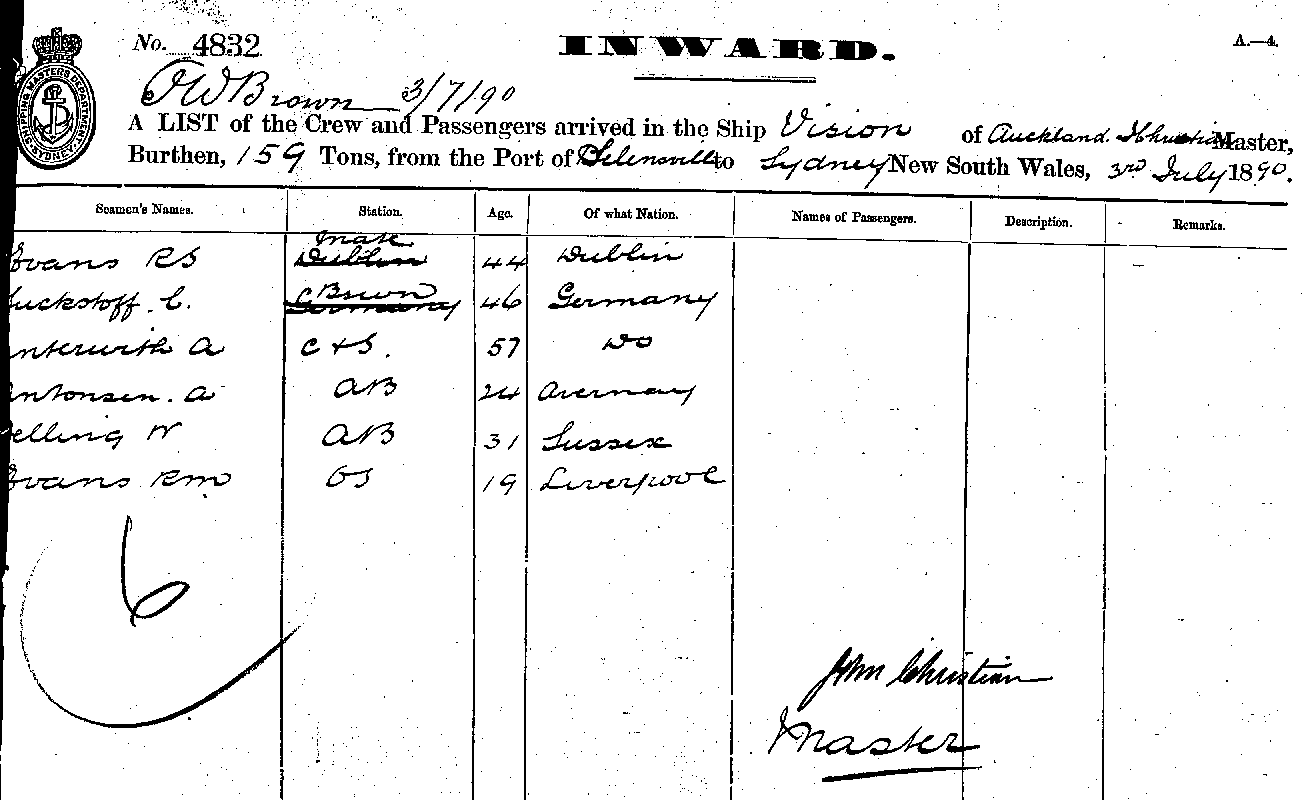 No. 4832 INWARD. A.—4.
SHIPPING MASTERS DEPARTMENT SYDNEY
Brown 3/7/90
A LIST of the Crew and Passengers arrived in the Ship Vision of Auckland. J Christian Master,
Burthen, 159 Tons, from the Port of Helensville to Sydney New South Wales, 3rd July 1890.
Seamen's Names. Station. Age. Of what Nation. Names of Passengers. Description. Remarks.
Mate
Evans RS Dublin 44 Dublin
Germany 46 Germany
A C & S. 57 Do
Antonsen. A AB 24
elling W AB 31 Sussex
Evans RM OS 19 Liverpool
6
John Christian
Master